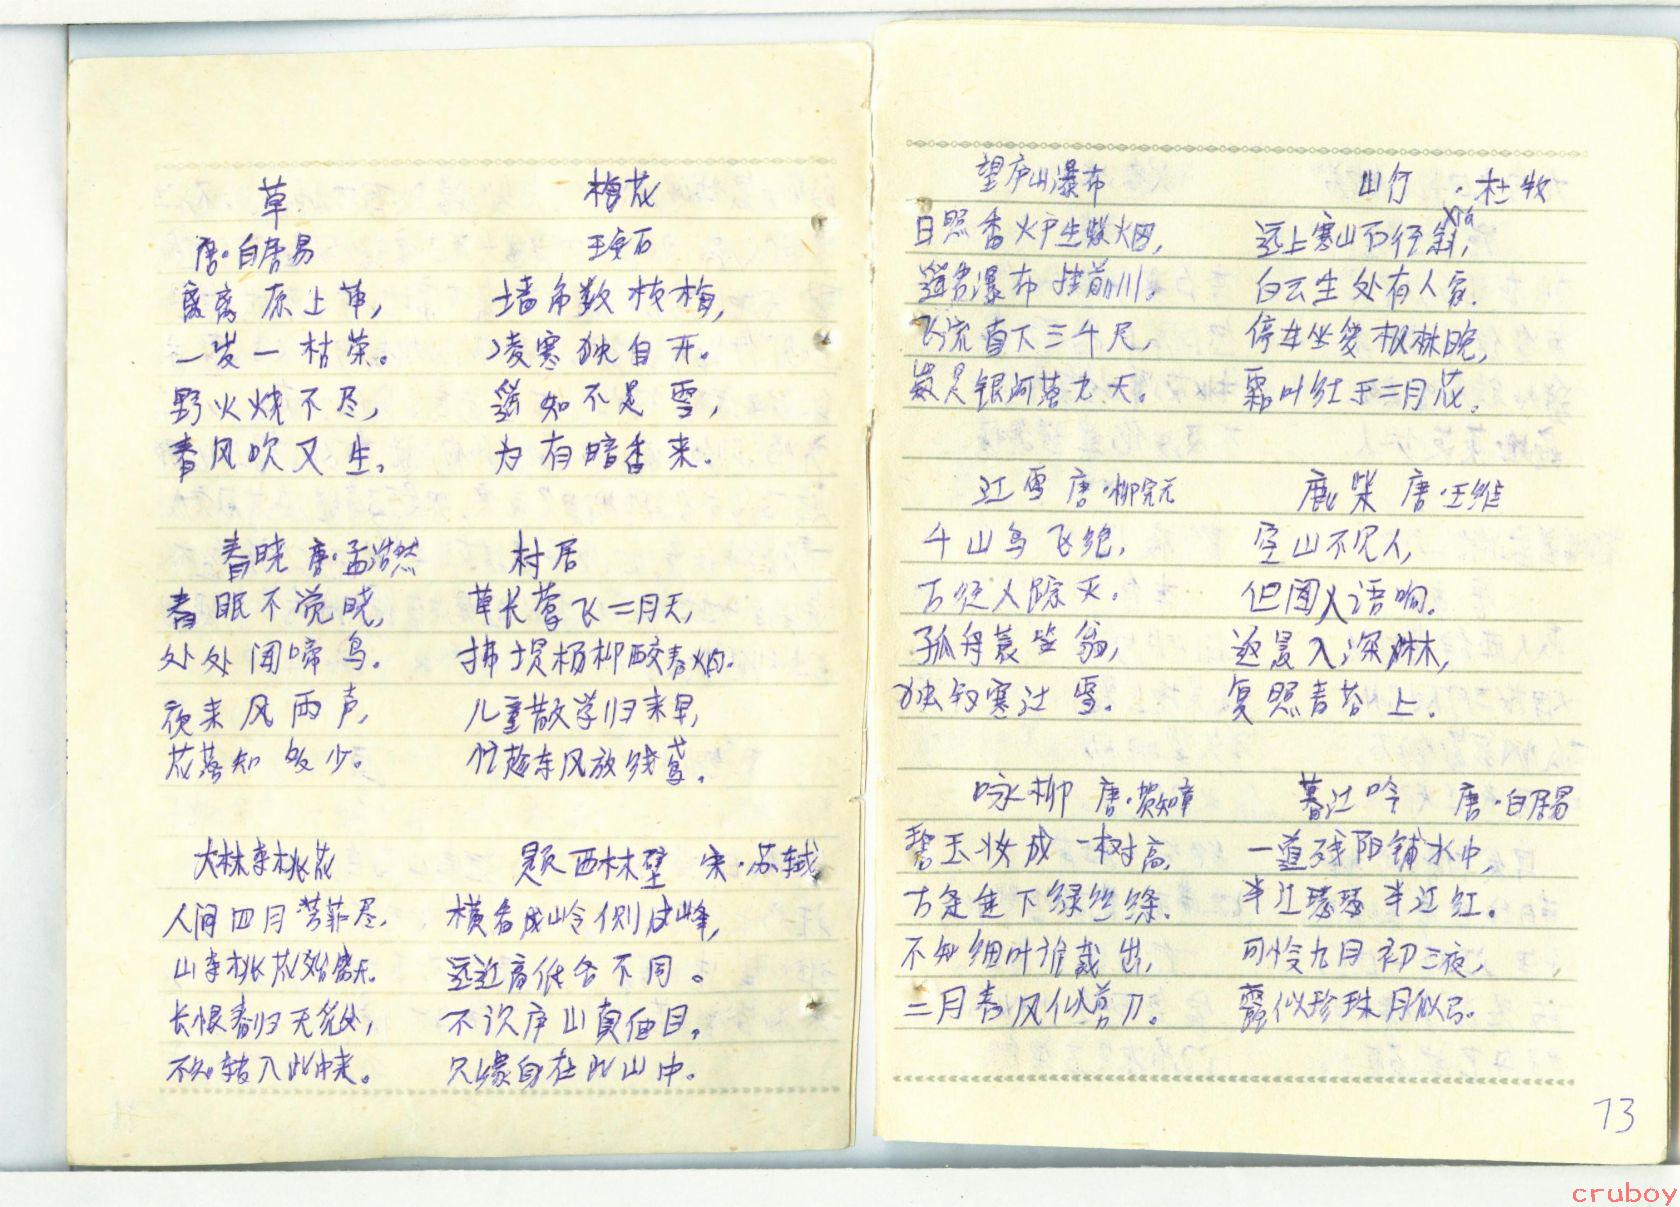 草
唐·白居易
离离原上草，
一岁一枯荣。
野火烧不尽，
春风吹又生。
梅花
王安石
墙角数枝梅，
凌寒独自开。
遥知不是雪，
为有暗香来。
春晓 唐·孟浩然
春眠不觉晓，
处处闻啼鸟。
夜来风雨声，
花落知多少。
村居
草长莺飞二月天，
拂堤杨柳醉春烟。
儿童散学归来早，
忙趁东风放纸鸢。
大林寺桃花
人间四月芳菲尽，
山寺桃花始盛开。
长恨春归无觅处，
不知转入此中来。
题西林壁 宋·苏轼
横看成岭侧成峰，
远近高低各不同。
不识庐山真面目，
只缘身在此山中。
望庐山瀑布
日照香炉生紫烟，
遥看瀑布挂前川。
飞流直下三千尺，
疑是银河落九天。
山行 ·杜牧
xia
远上寒山石径斜，
白云生处有人家.
停车坐爱枫林晚，
霜叶红于二月花.
江雪 唐·柳宗元
千山鸟飞绝，
万径人踪灭。
孤舟蓑笠翁，
独钓寒江雪。
鹿柴 唐·王维
空山不见人，
但闻人语响。
返景入深林，
复照青苔上.
咏柳 唐·贺知章
碧玉妆成一树高，
万条垂下绿丝绦.
不知细叶谁裁出，
二月春风似剪刀。
暮江吟 唐·白居易
一道残阳铺水中，
半江瑟瑟半江红。
可怜九月初三夜，
露似珍珠月似弓.
73
cruboy